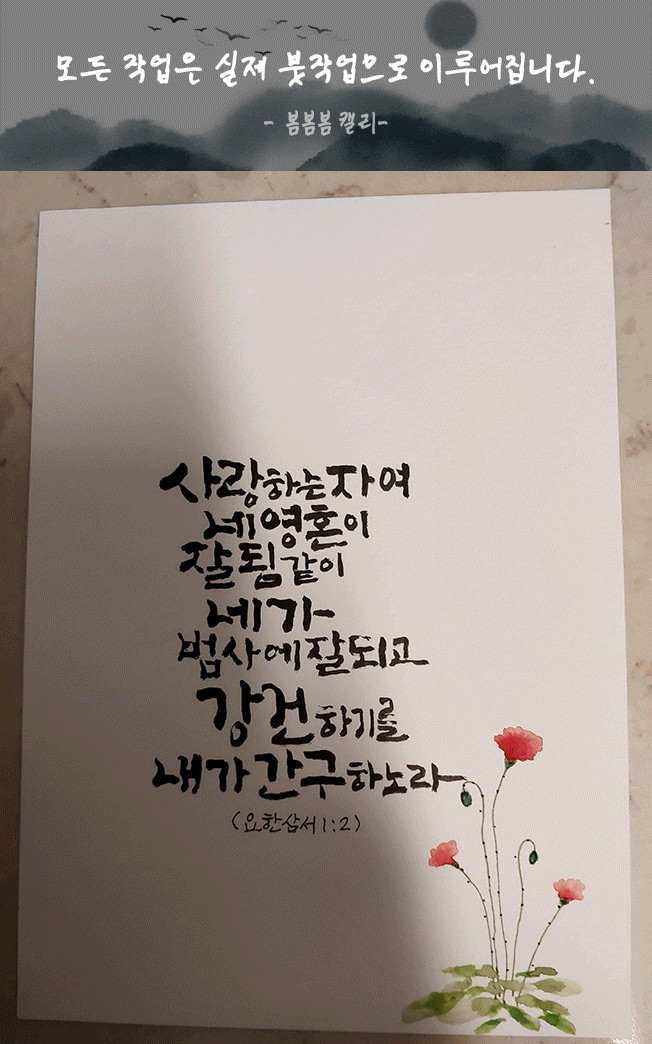 모든 작업은 실제 붓작업으로 이루어집니다.
- 봄봄봄 캘리-
사랑하는 자여
네 영혼이
잘됨 같이
네가
범사에 잘되고
강건하기를
내가 간구하노라
(요한삼서 1:2)